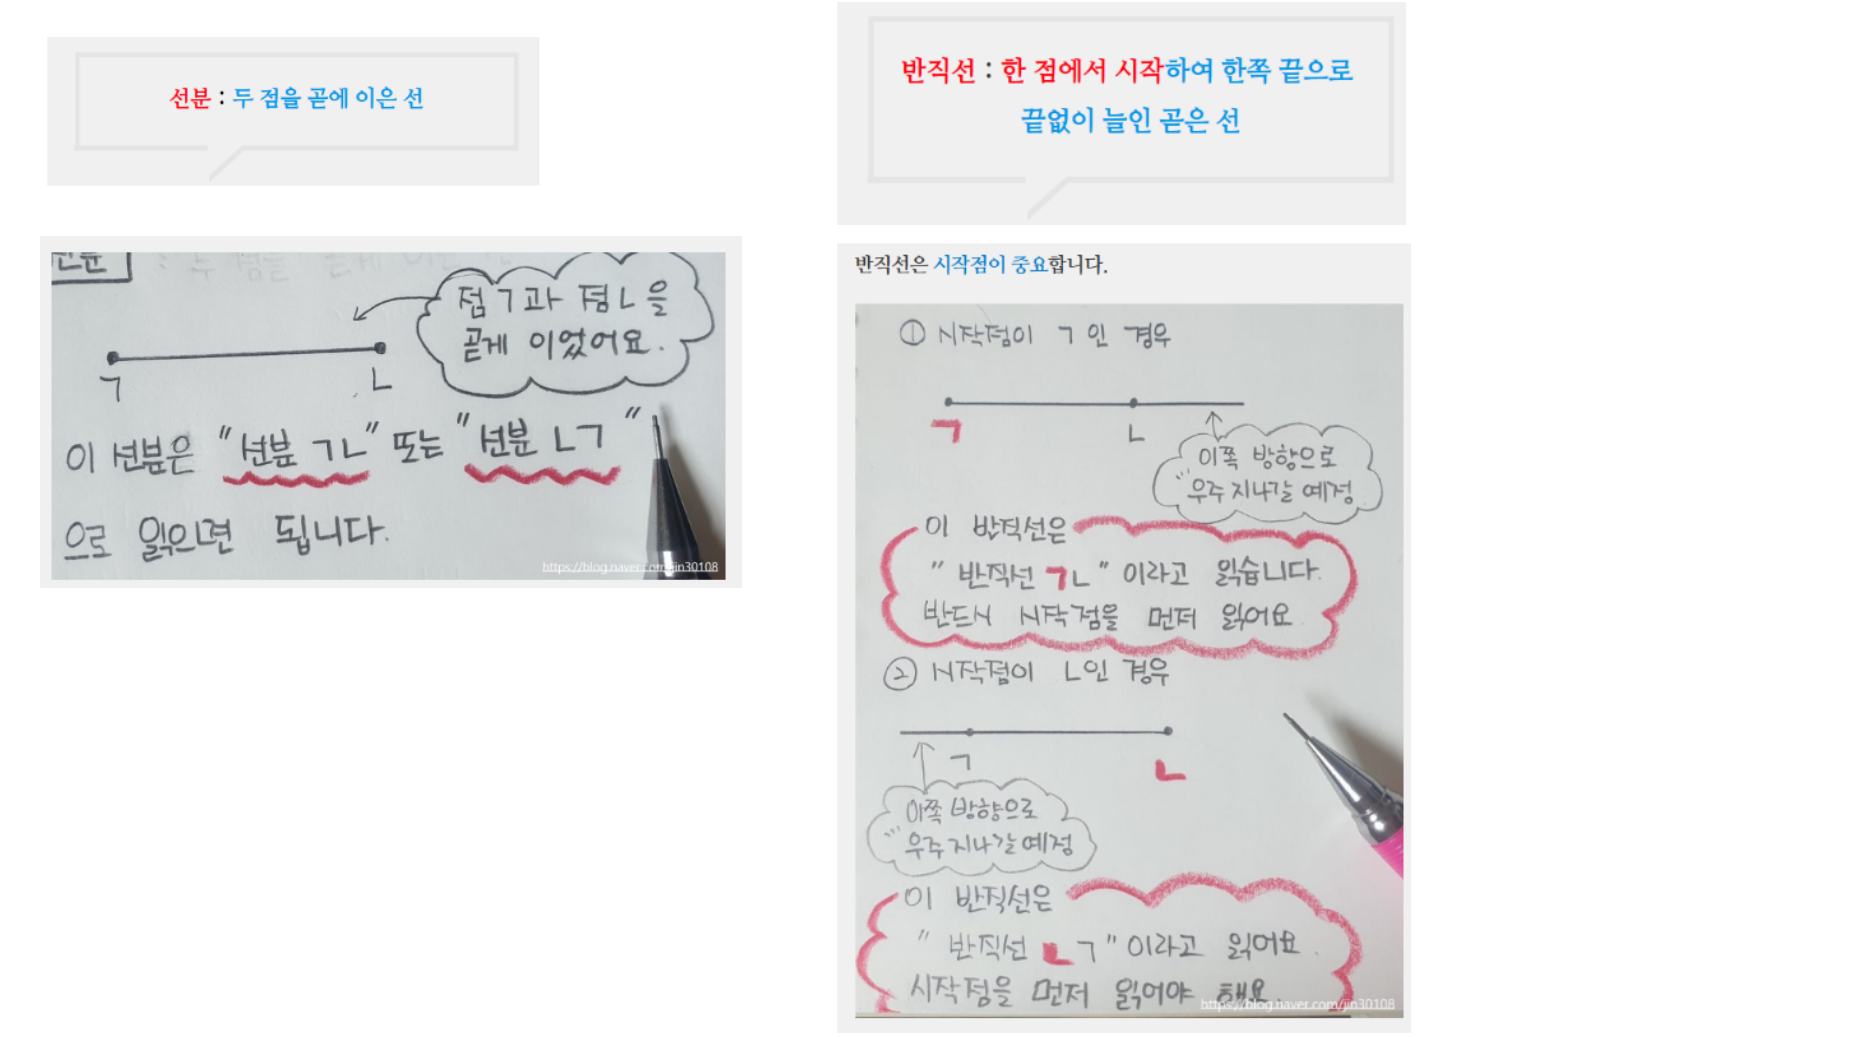 선분 : 두 점을 곧에 이은 선
선분
점 ㄱ과 점 ㄴ을
곧게 이었어요.
ㄱ
ㄴ
이 선분은 "선분 ㄱㄴ" 또는 "선분 ㄴㄱ"
으로 읽으면 됩니다.
https://blog.naver.com/jin30108
반직선 : 한 점에서 시작하여 한쪽 끝으로
끝없이 늘인 곧은 선
반직선은 시작점이 중요합니다.
① 시작점이 ㄱ인 경우
ㄱ
ㄴ
이쪽 방향으로
우주 지나갈 예정
이 반직선은
"반직선 ㄱㄴ"이라고 읽습니다.
반드시 시작점을 먼저 읽어요
② 시작점이 ㄴ인 경우
ㄱ
ㄴ
이쪽 방향으로
우주 지나갈 예정
이 반직선은
"반직선 ㄴㄱ"이라고 읽어요.
시작점을 먼저 읽어야 해요.
https://blog.naver.com/jin30108